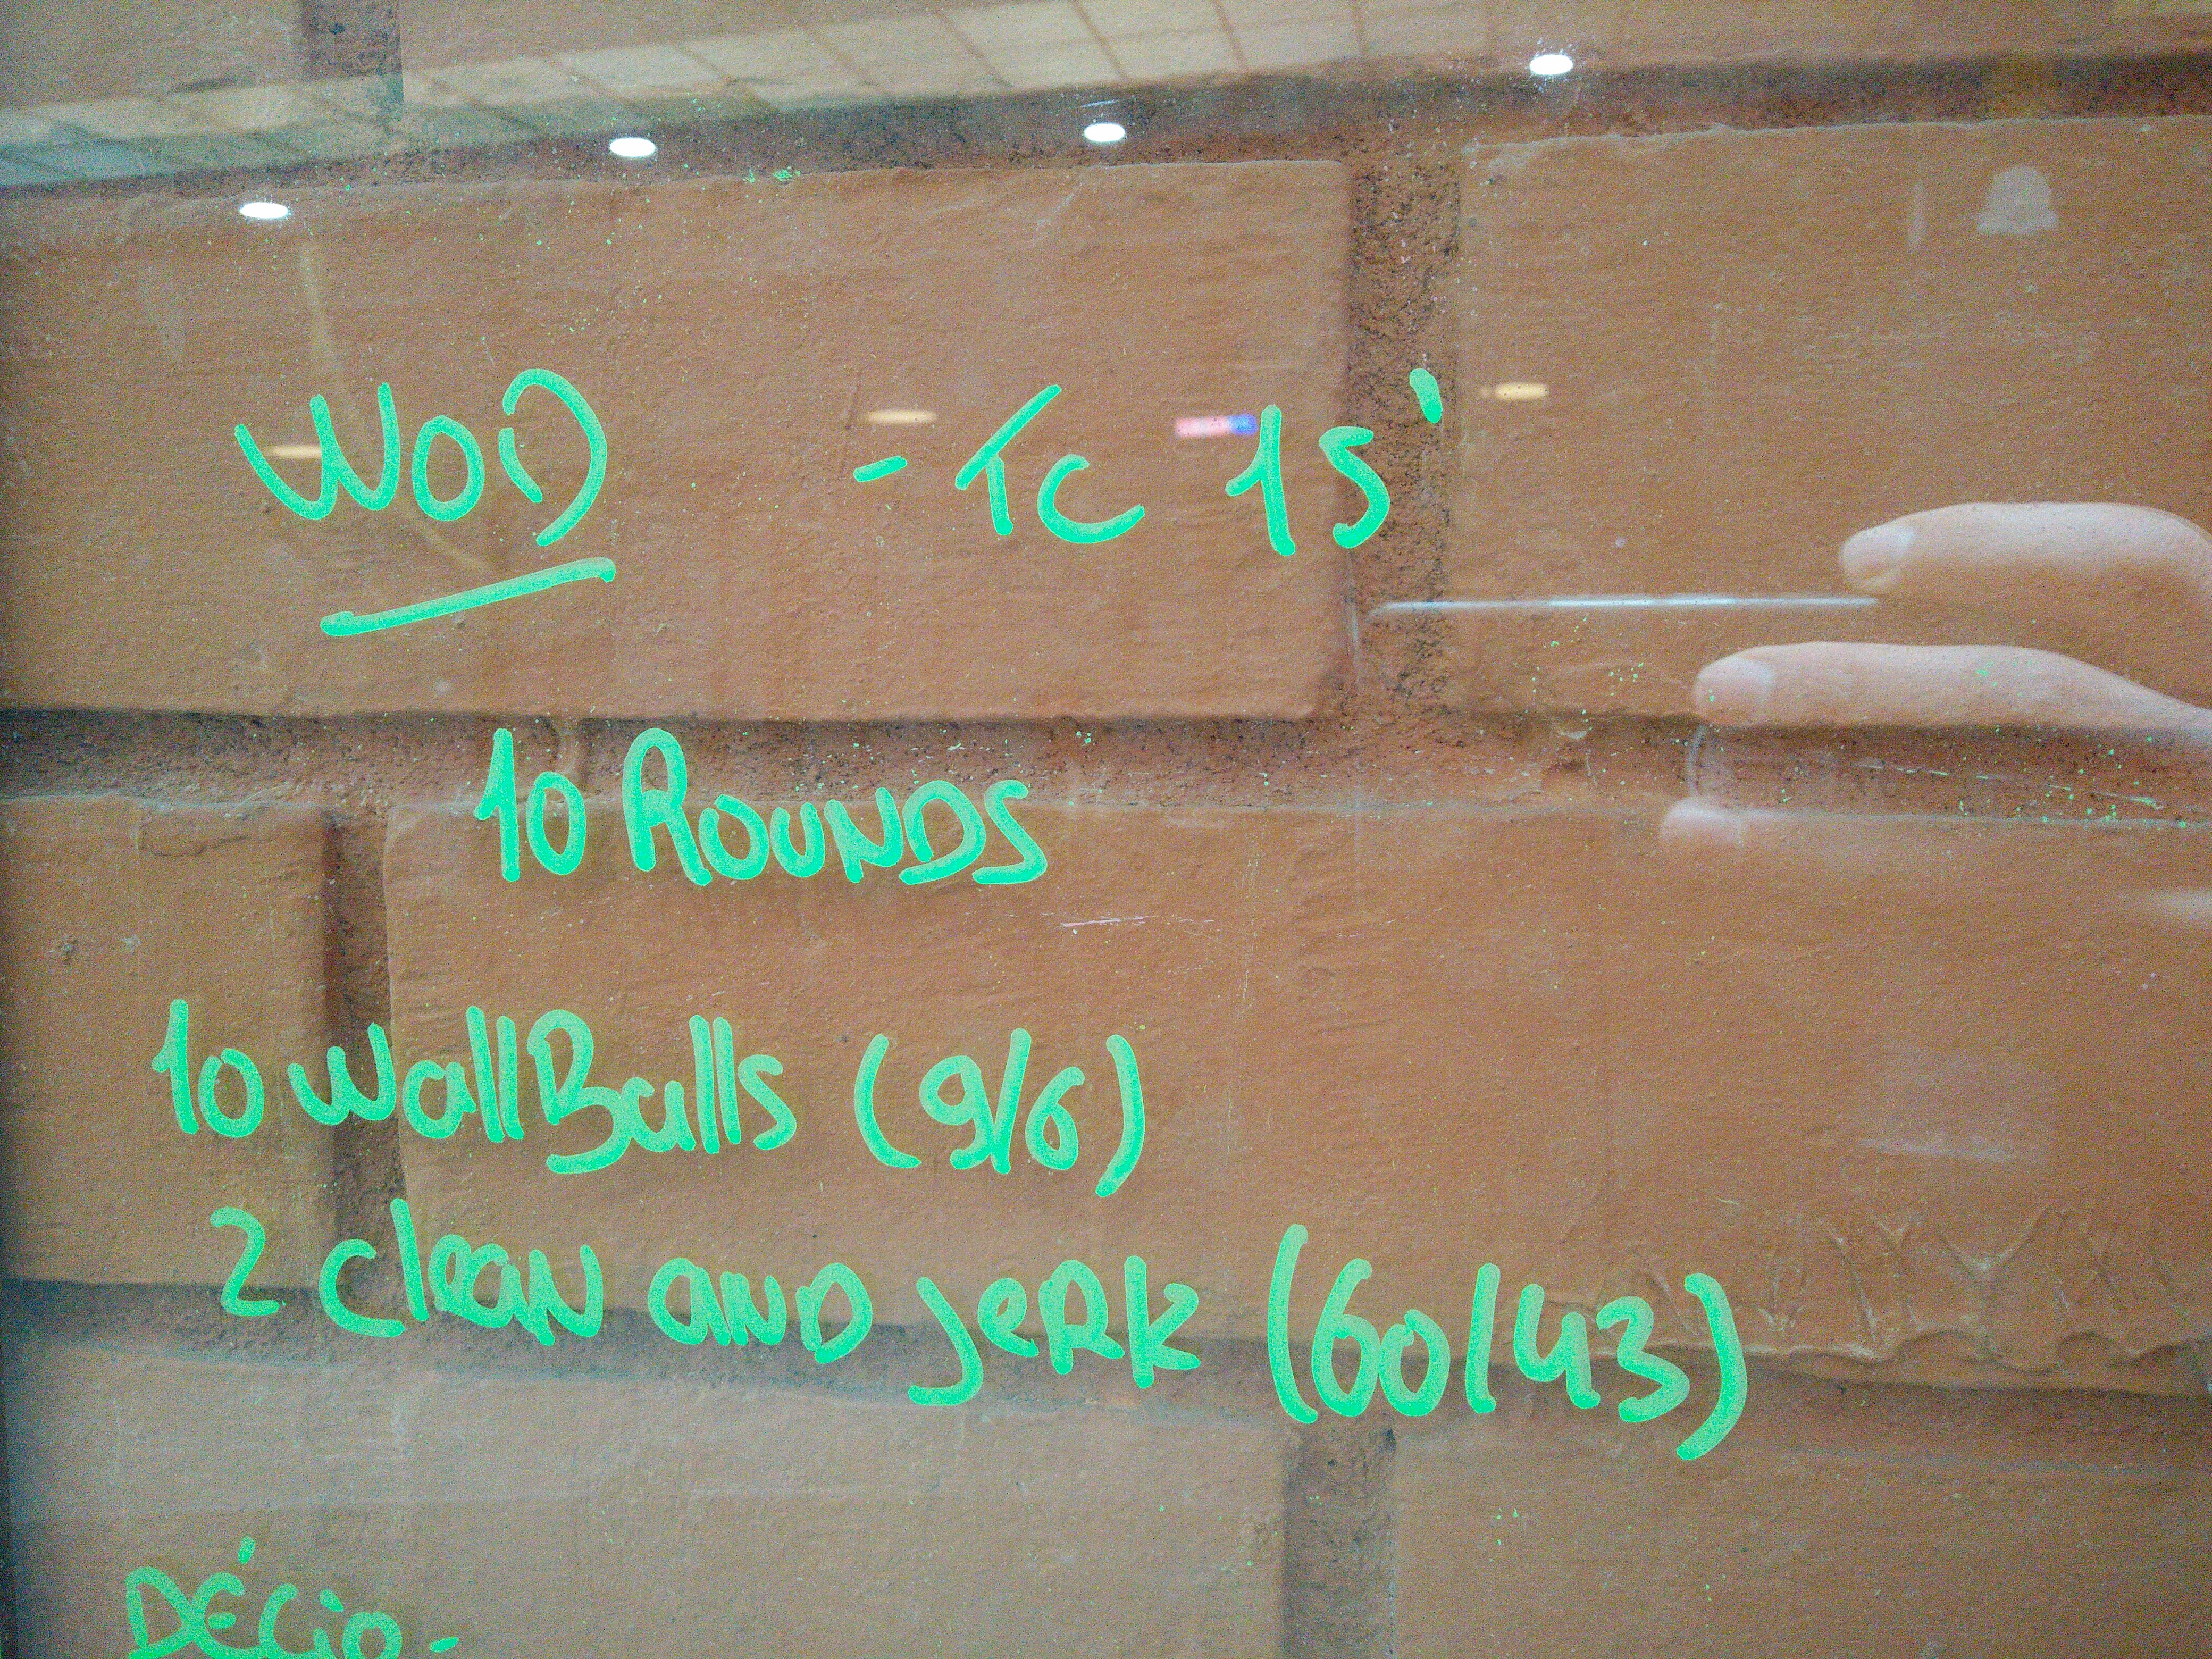 WOD - TC 15'
10 ROUNDS
10 WallBalls (9/6)
2 clean and jerk (60/43)
DÉCIO -